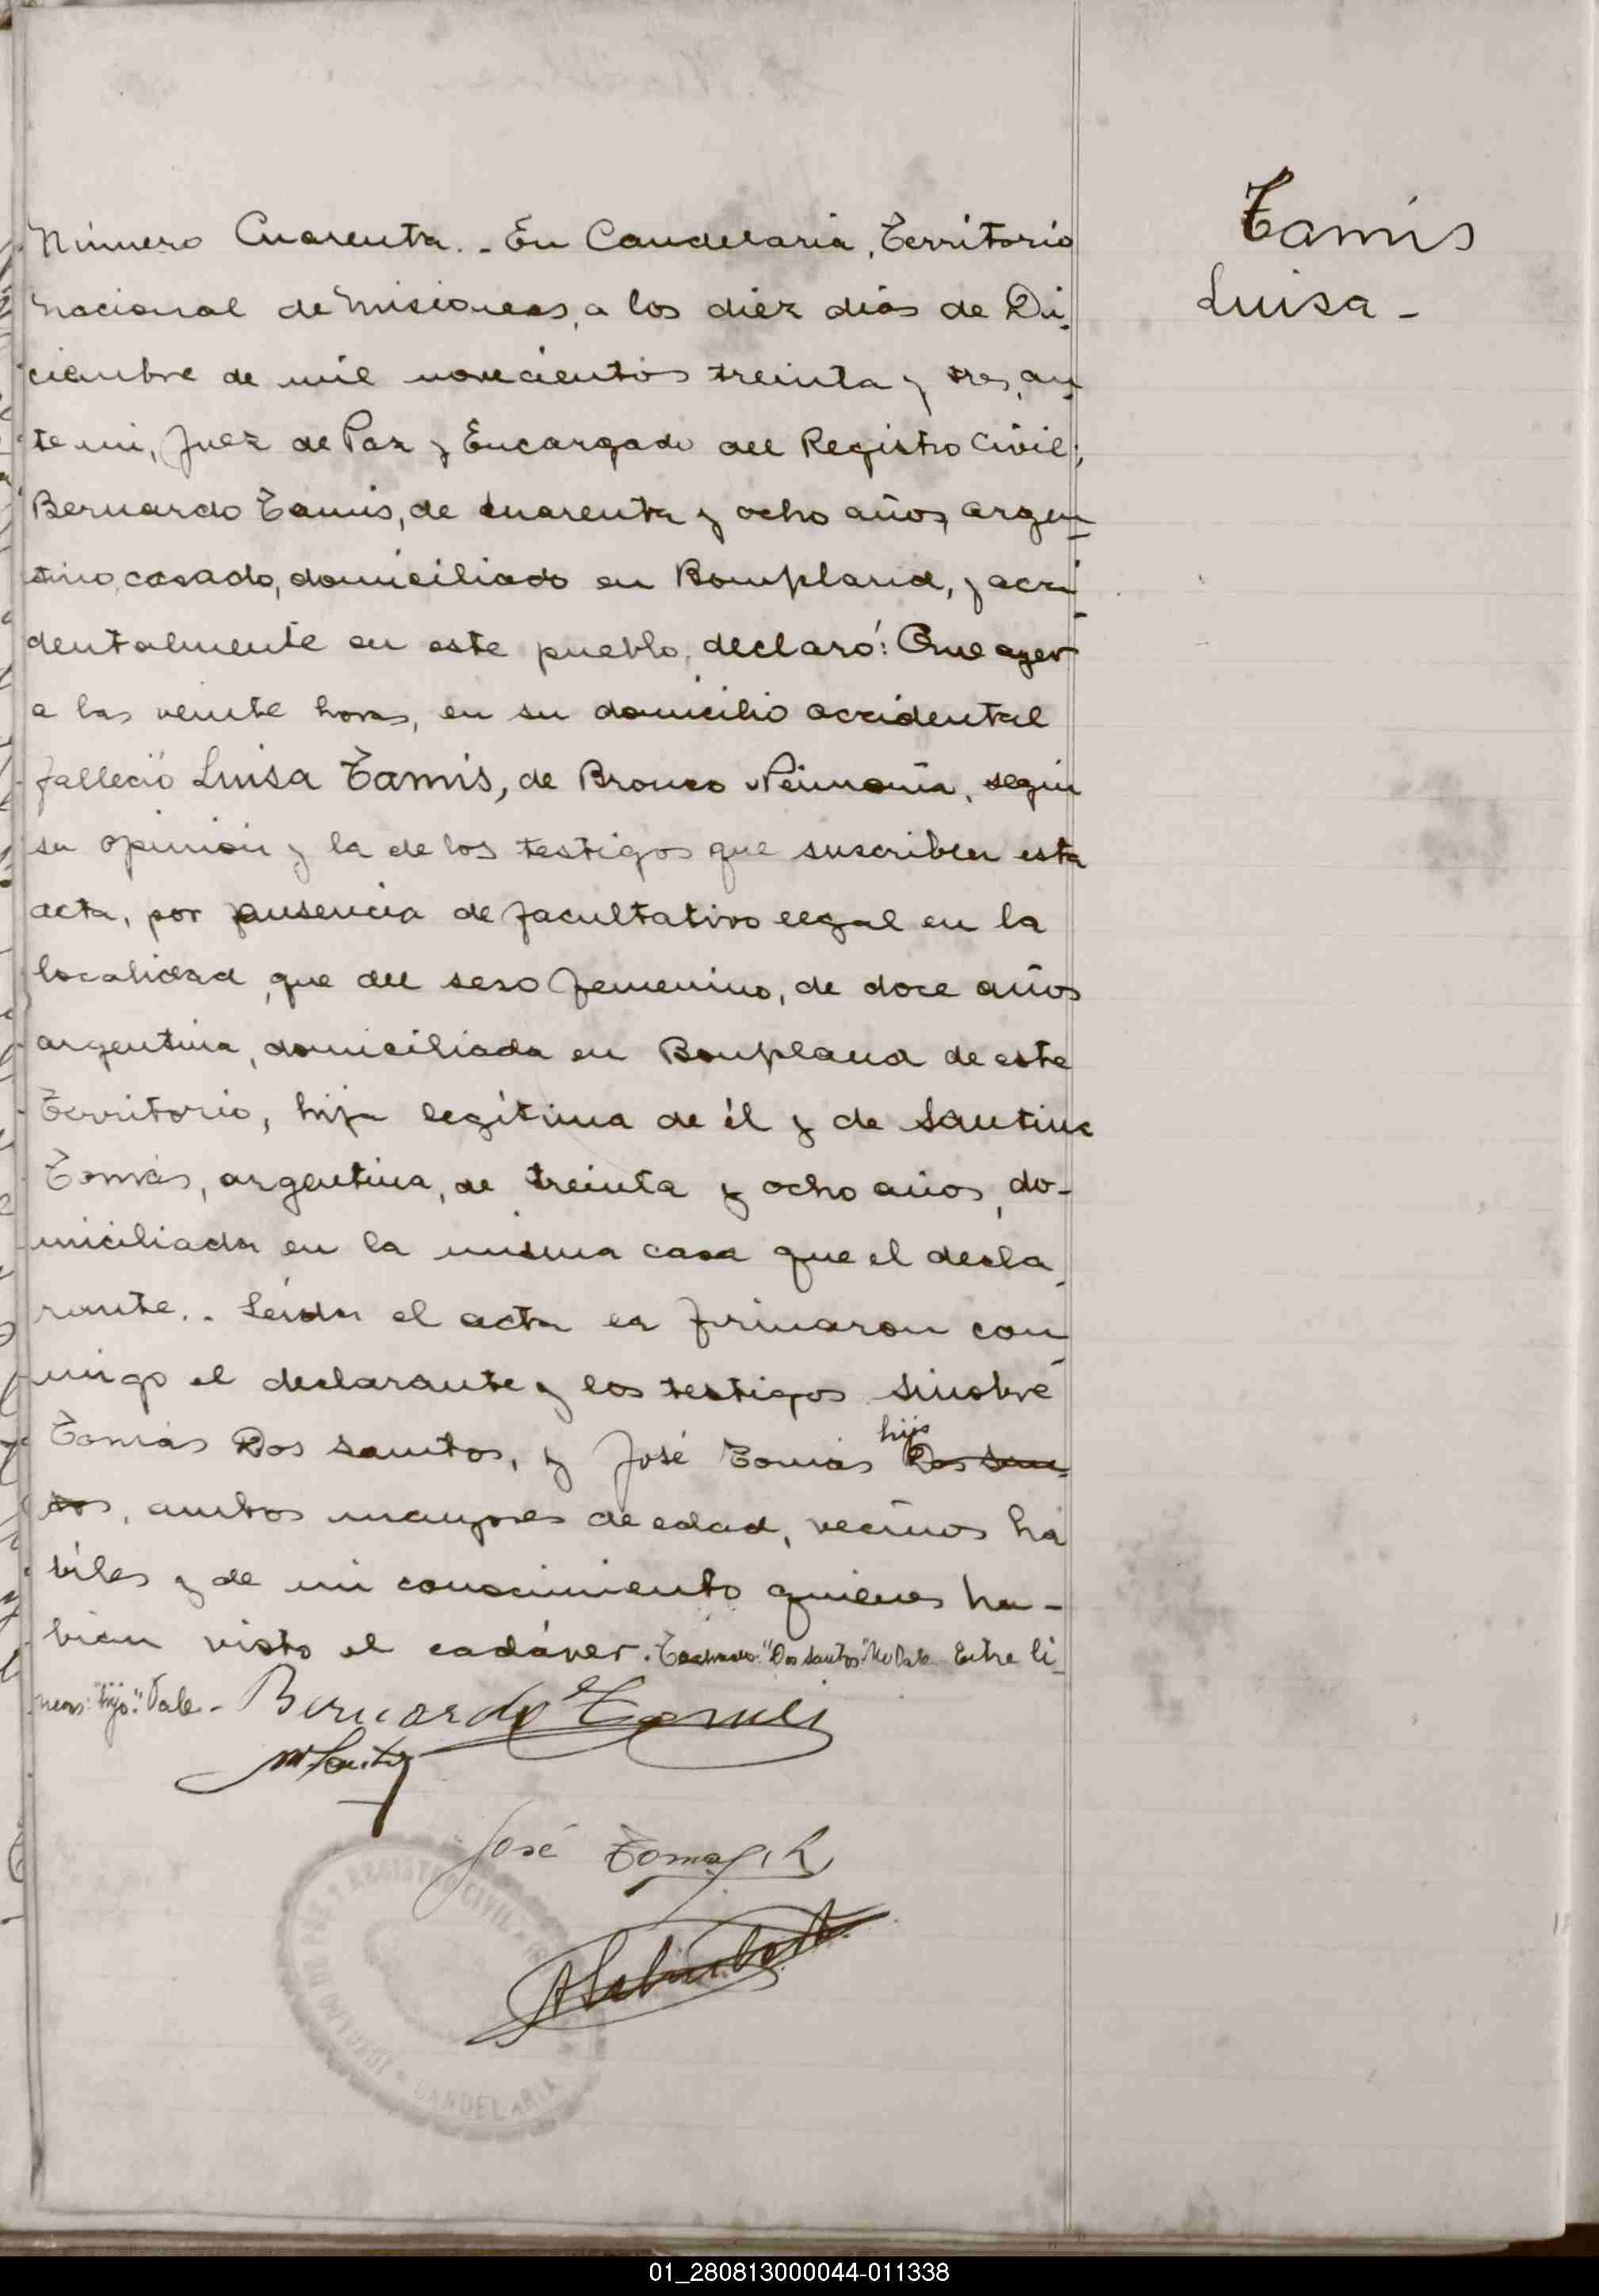 Número Cuarenta.. - En Candelaria, Territorio
Nacional de Misiones, a los diez dias de Di-
ciembre de mil novecientos treinta y tres, an-
te mi, Juez de Paz y Encargado del Registro Civil;
Bernardo Tamis, de cuarenta y ocho años, argen-
tino, casado, domiciliado en Bompland, y acci-
dentalmente en este pueblo, declaró: Que ayer
a las veinte horas, en su domicilio accidental
falleció Luisa Tamis, de Bronco Neumonía, según
su opinión y la de los testigos que suscriben esta
acta, por ausencia de facultativo legal en la
localidad, que del sexo femenino, de doce años
argentina, domiciliada en Bompland de este
Territorio, hija legítima de él y de Santina
Tomás, argentina, de treinta y ocho años, do-
miciliada en la misma casa que el decla-
rante.. Leída el acta la firmaron con-
migo el declarante y los testigos
Tomás Dos Santos, y José Tomás hijo Dos San-
tos, ambos mayores de edad, vecinos há
biles y de mi conocimiento quienes ha-
bian visto el cadáver. Tachado: "Dos Santos" No Vale. Entre lí-
neas: "hijo": Vale -
Bernardo
José Tomas, h
Tamis
Luisa -
REGISTRO CIVIL
CANDELARIA
01_280813000044-011338